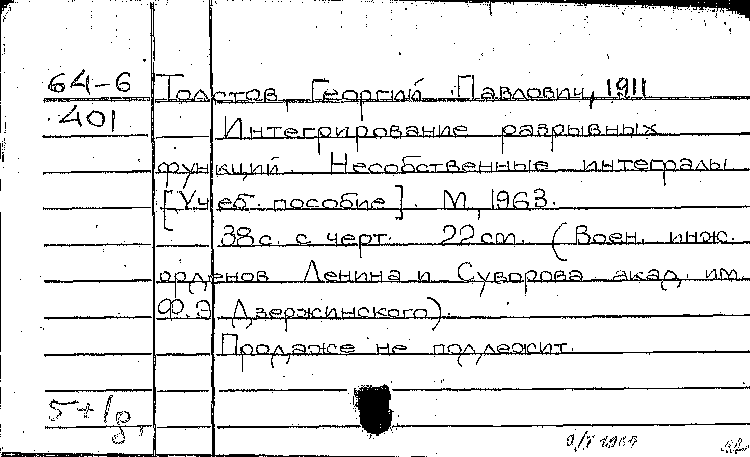 64-6 Толстов, Георгий Павлович, 1911
401 Интегрирование разрывных
функций. Несобственные интегралы
[Учеб. пособие]. М, 1963.
38 с. с черт. 22 см. (Воен. инж.
орденов Ленина и Суворова акад. им.
Ф.Э Дзержинского).
Продаже не подлежит.
5+1